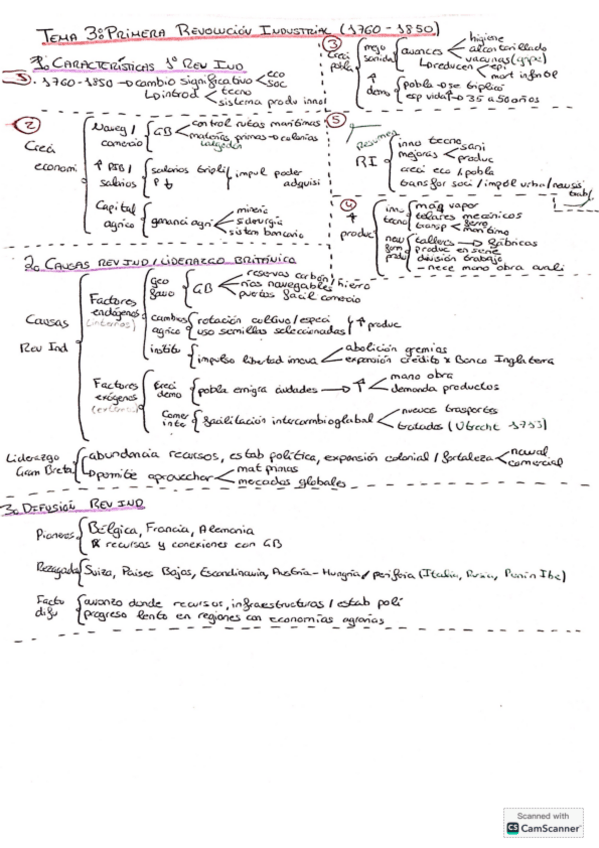 TEMA 3: PRIMERA REVOLUCIÓN INDUSTRIAL (1760-1850)
1. CARACTERÍSTICAS 1º REV IND
1. 1760-1850 → cambio significativo < eco
soc
↳ introd < tecno
sistema produ innol
2
Creci
economi
Naveg/
comercio
GB < control rutas marítimas
materias primas → colonias
algodón
↑ PIB/
salarios
salarios tripli
P ↓
impul poder
adquisi
Capital
agrico
gananci agri < minería
siderurgia
sistem bancario
3
Creci
pobla
mejo
sanida
avances < higiene
alcantarillado
vacunas
↳ reducen < epi
mort infntil
↑
demo
pobla → se triplicó
esp vida ↑ → 35 a 50 años
5
Resumen
RI
inno tecno
mejoras < sani
produc
creci eco / pobla
transfor soci / impul urba /
4
↑
produc
inno
tecno
maq vapor
telares mecánicos
transp < ferro
marítimo
new
form
produ
talleres → fábricas
produc en serie
división trabajo
- nece mano obra cuali
2. CAUSAS REV IND / LIDERAZGO BRITÁNICO
Causas
Rev Ind
Factores
endógenos
(internos)
geo
favo
GB < reservas carbón / hierro
rías navegables
puertos facil comercio
cambios
agrico
rotación cultivo / especi
uso semillas seleccionadas
↑ produc
institu
impulso libertad innova < abolición gremios
expansión crédito x Banco Inglaterra
Factores
exógenos
(externos)
Creci
demo
pobla emigra ciudades → ↑ < mano obra
demanda productos
Comer
inte
facilitación intercambio global < nuevos trasportes
tratados (Utrecht 1713)
Liderazgo
Gran Breta
abundancia recursos, estab política, expansión colonial / fortaleza < naval
comercial
↳ permite aprovechar < mat primas
mercados globales
3. DIFUSIÓN REV IND
Pioneros
Bélgica, Francia, Alemania
x recursos y conexiones con GB
Rezagada
Suiza, Países Bajos, Escandinavia, Austria-Hungría / periferia (Italia, Rusia, Penín Ibe)
Facto
difu
avanzo donde recursos, infraestructuras / estab polí
progreso lento en regiones con economías agrarias
Scanned with
CS CamScanner